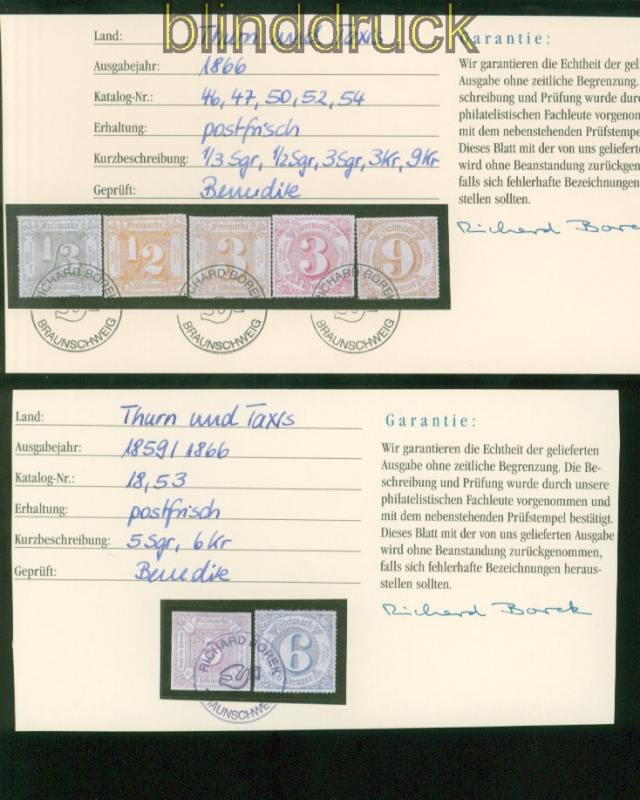 blinddruck
Land: Thurn und Taxis
Garantie:
Ausgabejahr: 1866
Katalog-Nr.: 46, 47, 50, 52, 54
Erhaltung: postfrisch
Kurzbeschreibung: 1/3 Sgr, 1/2 Sgr, 3 Sgr, 3 Kr, 9 Kr
Geprüft:
Wir garantieren die Echtheit der gelie
Ausgabe ohne zeitliche Begrenzung.
schreibung und Prüfung wurde durc
philatelistischen Fachleute vorgenom
mit dem nebenstehenden Prüfstempe
Dieses Blatt mit der von uns gelieferte
wird ohne Beanstandung zurückgen
falls sich fehlerhafte Bezeichnungen
stellen sollten.
Richard Borek
Freimarke Freimarke Freimarke Freimarke Freimarke
1/3 1/2 3 3 9
RICHARD BOREK RICHARD BOREK RICHARD BOREK
BRAUNSCHWEIG BRAUNSCHWEIG BRAUNSCHWEIG
Land: Thurn und Taxis
Ausgabejahr: 1859/1866
Katalog-Nr.: 18, 53
Erhaltung: postfrisch
Kurzbeschreibung: 5 Sgr, 6 Kr
Geprüft:
Garantie:
Wir garantieren die Echtheit der gelieferten
Ausgabe ohne zeitliche Begrenzung. Die Be-
schreibung und Prüfung wurde durch unsere
philatelistischen Fachleute vorgenommen und
mit dem nebenstehenden Prüfstempel bestätigt.
Dieses Blatt mit der von uns gelieferten Ausgabe
wird ohne Beanstandung zurückgenommen,
falls sich fehlerhafte Bezeichnungen heraus-
stellen sollten.
Richard Borek
Freimarke Freimarke
5 6
Kreuzer
RICHARD BOREK
BRAUNSCHWEIG